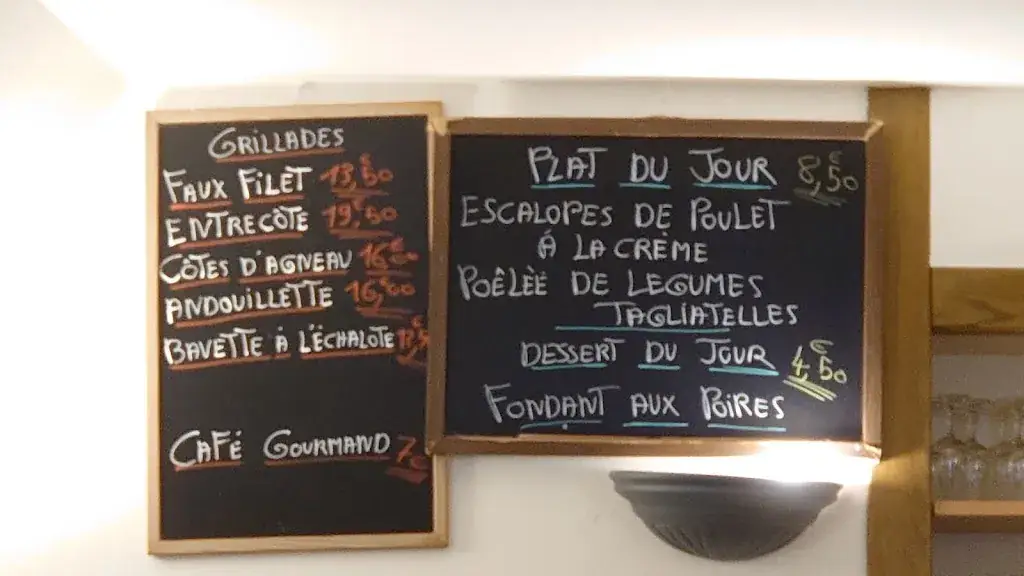 GRILLADES
FAUX FILÈT 13,€50
ENTRECÔTE 19,€50
CÔTES D'AGNEAU 16€00
ANDOUILLETTE 16,€00
BAVETTE À L'ÉCHALOTE
CAFÉ GOURMAND 7€
PLAT DU JOUR 8,€50
ESCALOPES DE POULET
À LA CRÈME
POÊLÈE DE LEGUMES
TAGLIATELLES
DESSERT DU JOUR 4,€50
FONDANT AUX POIRES